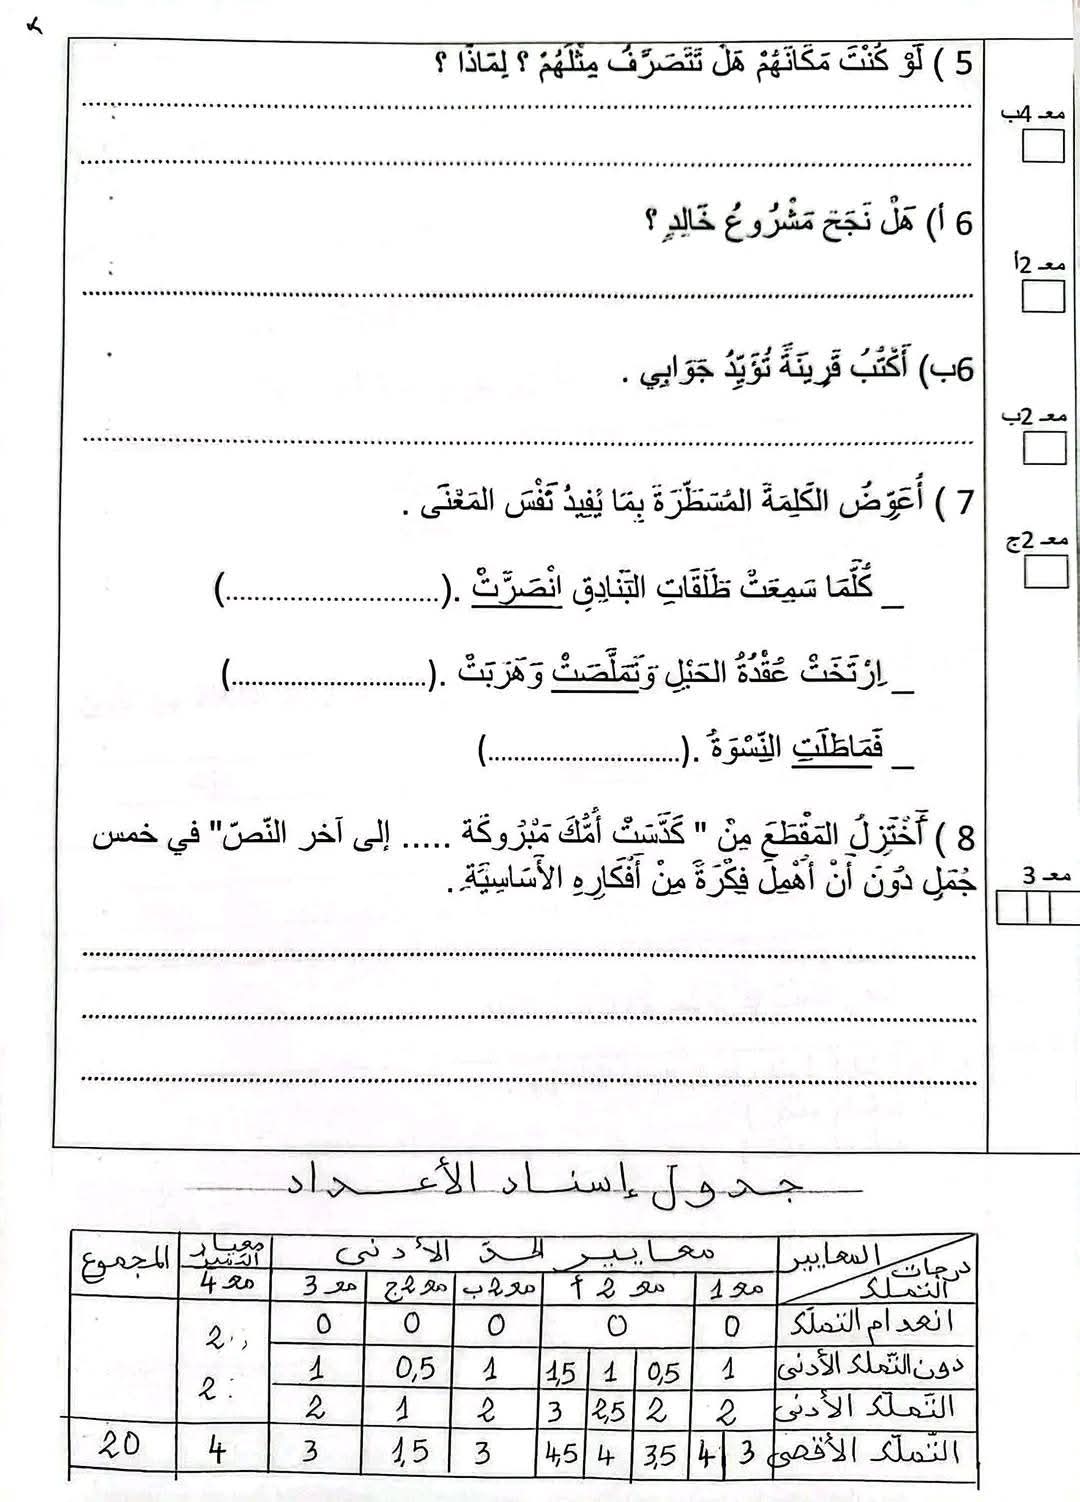 5 ) لَوْ كُنْتَ مَكَانَهُمْ هَلْ تَتَصَرَّفُ مِثْلَهُمْ ؟ لِمَاذَا ؟
معـ 4ب
6 أ) هَلْ نَجَحَ مَشْرُوعُ خَالِدٍ ؟
معـ 2أ
6ب) أَكْتُبُ قَرِينَةً تُؤَيِّدُ جَوَابِي .
معـ 2ب
7 ) أُعَوِّضُ الكَلِمَةَ المُسَطَّرَةَ بِمَا يُفِيدُ نَفْسَ المَعْنَى .
معـ 2ج
_ كُلَّمَا سَمِعَتْ طَلَقَاتِ البَنَادِقِ انْصَرَّتْ .(............................)
_ اِرْتَخَتْ عُقْدَةُ الحَبْلِ وَتَمَلَّصَتْ وَهَرَبَتْ .(............................)
_ فَمَاطَلَتِ النِّسْوَةُ .(............................)
8 ) أَخْتَزِلُ المَقْطَعَ مِنْ " كَدَّسَتْ أُمُّكَ مَبْرُوكَة ..... إلى آخر النّصّ" في خمس
جُمَلٍ دُونَ أَنْ أُهْمِلَ فِكْرَةً مِنْ أَفْكَارِهِ الأَسَاسِيَّةِ .
معـ 3
جدول إسناد الأعداد
المعايير درجات التملك | معايير الحدّ الأدنى | معيار التميز | المجموع
معـ 1 | معـ 2 أ | معـ 2ب | معـ 2ج | معـ 3 | معـ 4
انعدام التملك | 0 | 0 | 0 | 0 | 0
دون التّملك الأدنى | 1 | 0,5 | 1 | 1,5 | 1 | 0,5 | 1 | 2
التّملك الأدنى | 2 | 2 | 2,5 | 3 | 2 | 1 | 2 | 2
التّملك الأقصى | 3 | 4 | 3,5 | 4 | 4,5 | 3 | 1,5 | 3 | 4 | 20